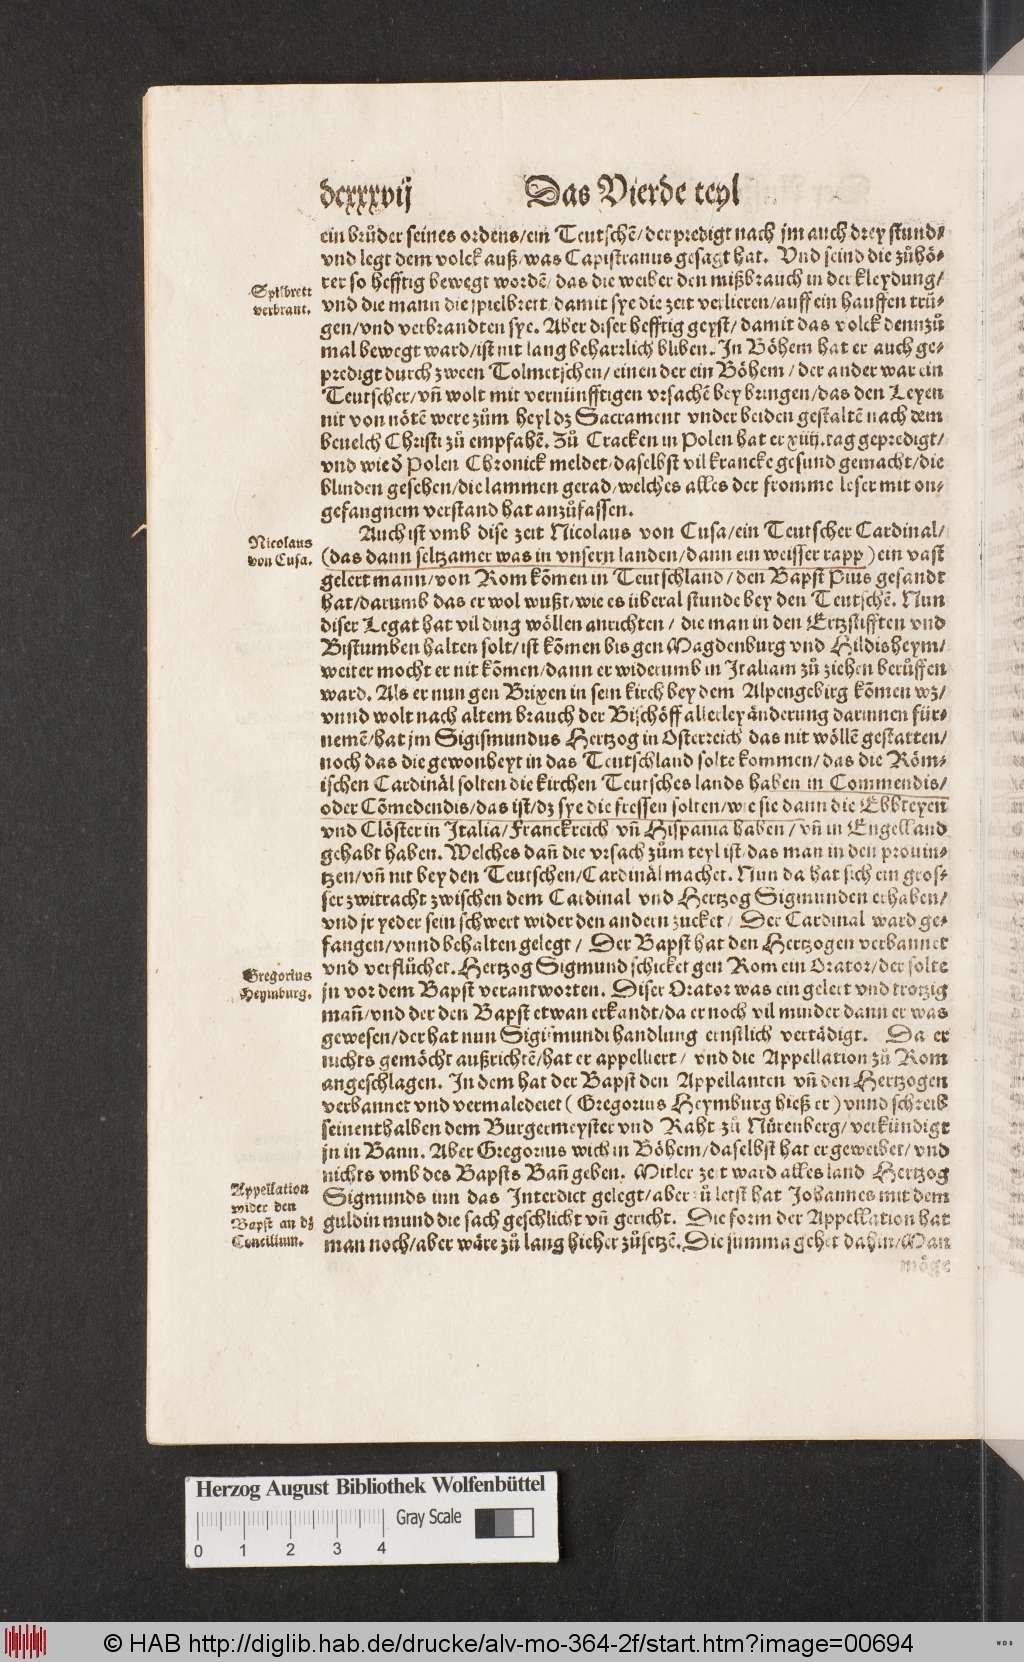 dcxxxvij Das Vierde teyl
ein brůder seines ordens/ein Teutschē/der predigt nach jm auch drey stund/
vnd legt dem volck auß/was Capistranus gesagt hat. Vnd seind die zůhö-
rer so hefftig bewegt wordē/das die weiber den mißbrauch in der kleydung/
Spilbrett
verbrant.
vnd die mann die spielbrett/damit sye die zeit verlieren/auff ein hauffen trů-
gen/vnd verbrandten sye. Aber diser hefftig geyst/damit das volck dennzů
mal bewegt ward/ist nit lang beharrlich bliben. In Böhem hat er auch ge-
predigt durch zween Tolmetschen/einen der ein Böhem/der ander war ein
Teutscher/vñ wolt mit vernünfftigen vrsachē bey bringen/das den Leyen
nit von nötē were zům heyl dz Sacrament vnder beiden gestaltē nach dem
beuelch Christi zů empfahē. Zů Cracken in Polen hat er xiiij.tag gepredigt/
vnd wie d̄ Polen Chronick meldet/daselbst vil krancke gesund gemacht/die
blinden gesehen/die lammen gerad/welches alles der fromme leser mit on-
gefangnem verstand hat anzůfassen.
Nicolaus
von Cusa.
Auch ist vmb dise zeit Nicolaus von Cusa/ein Teutscher Cardinal/
(das dann seltzamer was in vnsern landen/dann ein weisser rapp) ein vast
gelert mann/von Rom kōmen in Teutschland/den Bapst Pius gesandt
hat/darumb das er wol wußt/wie es überal stunde bey den Teutschē. Nun
diser Legat hat vil ding wöllen anrichten/die man in den Ertzstifften vnd
Bistumben halten solt/ist kōmen bis gen Magdenburg vnd Hildisheym/
weiter mocht er nit kōmen/dann er widerumb in Italiam zů ziehen berůffen
ward. Als er nun gen Brixen in sein kirch bey dem Alpengebirg kōmen wz/
vnnd wolt nach altem brauch der Bischöff allerley änderung darinnen für-
nemē/hat jm Sigismundus Hertzog in Osterreich das nit wöllē gestatten/
noch das die gewonheyt in das Teutschland solte kommen/das die Röm-
ischen Cardinäl solten die kirchen Teutsches lands haben in Commendis/
oder Cōmedendis/das ist/dz sye die fressen solten/wie sie dann die Ebbteyen
vnd Clöster in Italia/Franckreich vñ Hispania haben/vñ in Engelland
gehabt haben. Welches dañ die vrsach zům teyl ist/das man in den prouin-
tzen/vñ nit bey den Teutschen/Cardinäl machet. Nun da hat sich ein gros-
ser zwitracht zwischen dem Cardinal vnd Hertzog Sigmunden erhaben/
vnd jr yeder sein schwert wider den andern zucket/ Der Cardinal ward ge-
fangen/vnnd behalten gelegt/ Der Bapst hat den Hertzogen verbannet
Gregorius
Heymburg.
vnd verflůchet. Hertzog Sigmund schicket gen Rom ein Orator/der solte
jn vor dem Bapst verantworten. Diser Orator was ein gelert vnd trotzig
mañ/vnd der den Bapst etwan erkandt/da er noch vil minder dann er was
gewesen/der hat nun Sigismundi handlung ernstlich vertädigt. Da er
nichts gemöcht außrichtē/hat er appelliert/ vnd die Appellation zů Rom
angeschlagen. In dem hat der Bapst den Appellanten vñ den Hertzogen
verbannet vnd vermaledeiet (Gregorius Heymburg hieß er) vnnd schreib
seinenthalben dem Burgermeyster vnd Raht zů Nürenberg/verkündigt
jn in Bann. Aber Gregorius wich in Böhem/daselbst hat er geweibet/vnd
nichts vmb des Bapsts Bañ geben. Mitler zeit ward alles land Hertzog
Appellation
wider den
Bapst an dz
Concilium.
Sigmunds inn das Interdict gelegt/aber zů letst hat Johannes mit dem
guldin mund die sach geschlicht vñ gericht. Die form der Appellation hat
man noch/aber wäre zů lang hieher zůsetzē. Die summa gehet dahin/Man
möge
Herzog August Bibliothek Wolfenbüttel
Gray Scale
0 1 2 3 4
© HAB http://diglib.hab.de/drucke/alv-mo-364-2f/start.htm?image=00694